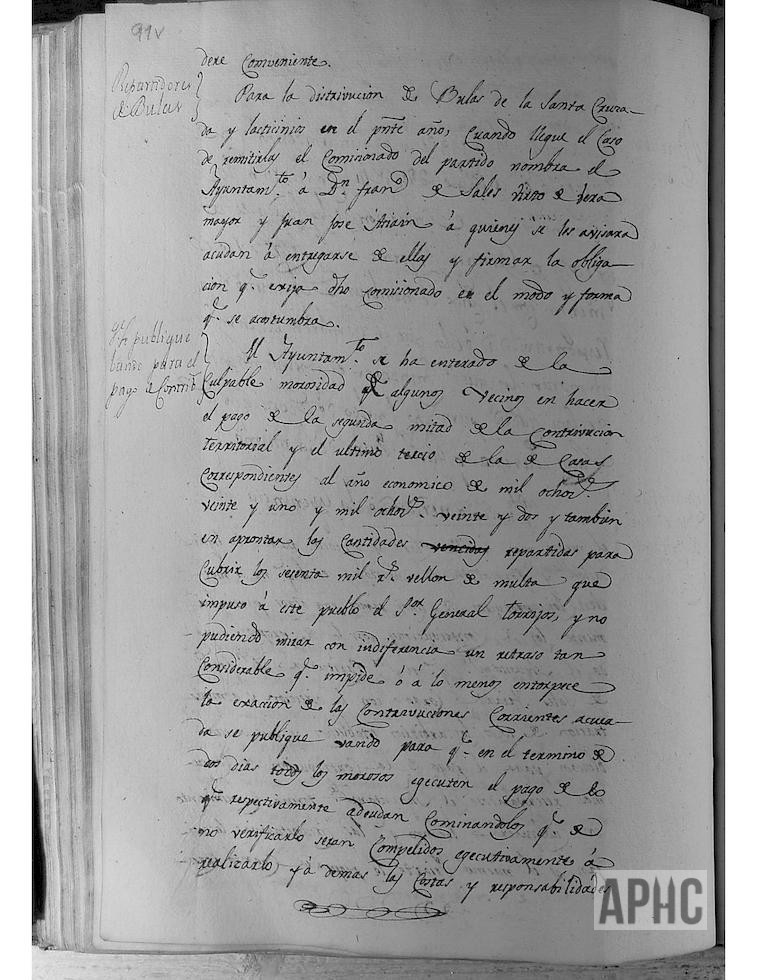 91v
dere Conveniente.
Repartidores
de Bulas
Para la distrivucion de Bulas de la Santa Cruza-
da y lacticinios en el pnte año, Cuando llegue el Caso
de remitirlas el Comicionado del partido nombra el
Ayuntam.to á Dn. Franco de Sales Virto de Vera
mayor y Juan José á quienes se les avisara
acudan á entregarse de ellas y firmar la obliga-
cion q.e exija dho Comisionado en el modo y forma
q.e se acostumbra.
q.e se publique
bando para el
pago de Contrib.
El Ayuntam.to se ha enterado de la
Culpable morosidad de algunos Vecinos en hacer
el pago de la segunda mitad de la Contrivucion
territorial y el ultimo tercio de la de Casas
Correspondientes al año economico de mil ochos
veinte y uno y mil ochos. veinte y dos y tambien
en aprontar las Cantidades vencidas repartidas para
Cubrir los sesenta mil r.s vellon de multa que
impuso á este pueblo el S.or General Torrijos, y no
pudiendo mirar con indiferencia un retraso tan
Considerable q.e impide ó á lo menos entorpece
la exacion de las Contrivuciones Corrientes acuer-
da se publique vando para q.e en el termino de
dos dias todos los morosos egecuten el pago de lo
q.e respectivamente adeudan Cominandolos q.e de
no verificarlo seran Compelidos egecutivamente á
realizarlo y á demas las Costas y responsabilidades
APHC